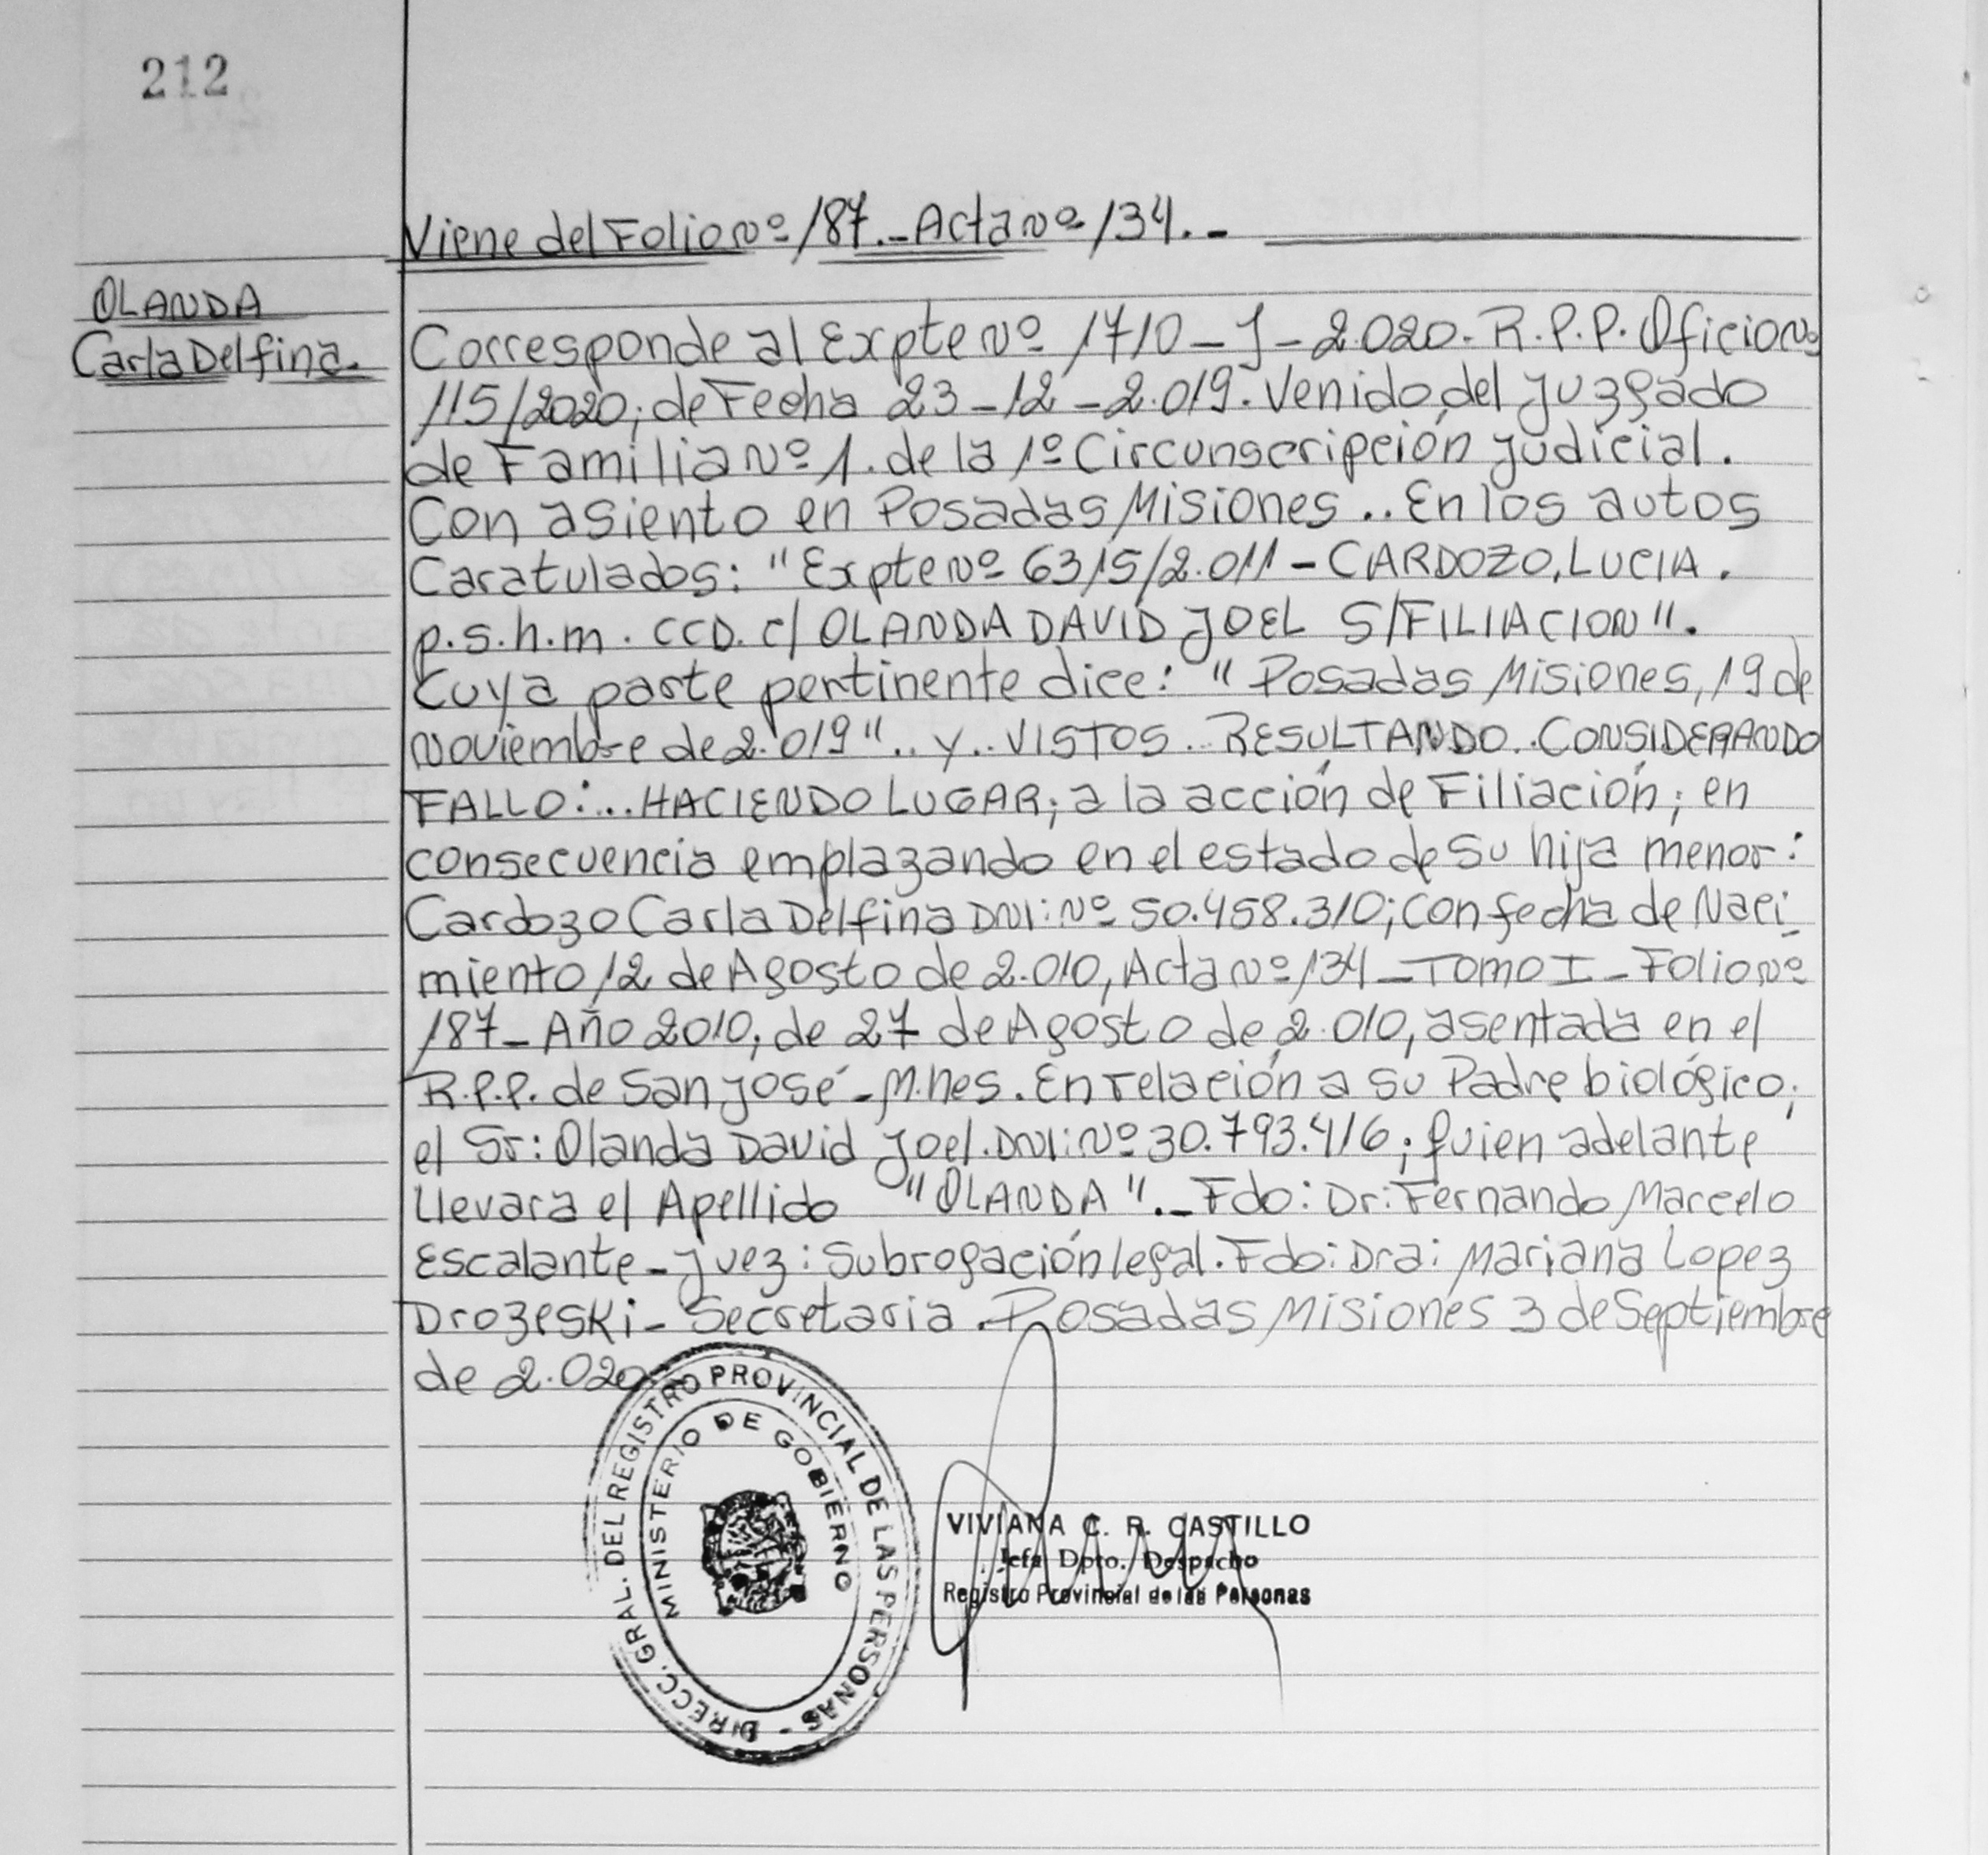 212
Viene del Folio Nº 187.- Acta Nº 134.-
OLANDA
Carla Delfina.
Corresponde al Expte Nº 1710-J-2.020. R.P.P. Oficio Nº
115/2020; de Fecha 23-12-2.019. Venido, del Juzgado
de Familia Nº 1. de la 1º Circunscripción Judicial.
Con asiento en Posadas Misiones.. En los autos
Caratulados: "Expte Nº 6315/2.011 - CARDOZO, LUCIA.
p.s.h.m. CCD. c/ OLANDA DAVID JOEL S/FILIACION".
Cuya parte pertinente dice: "Posadas Misiones, 19 de
Noviembre de 2.019".. y.. VISTOS.. RESULTANDO.. CONSIDERANDO
FALLO:... HACIENDO LUGAR; a la acción de Filiación; en
consecuencia emplazando en el estado de su hija menor:
Cardozo Carla Delfina DNI: Nº 50.458.310; con fecha de Naci-
miento 12 de Agosto de 2.010, Acta Nº 134 - TOMO I - Folio Nº
187 - Año 2010; de 27 de Agosto de 2.010, asentada en el
R.P.P. de San José - M.nes. En relación a su Padre biológico;
el Sr: Olanda David Joel. DNI: Nº 30.793.416; quien adelante
Llevara el Apellido "OLANDA".- Fdo: Dr: Fernando Marcelo
Escalante - Juez: Subrogación legal. Fdo: Dra: Mariana Lopez
Drozeski - Secretaria. Posadas Misiones 3 de Septiembre
de 2.020
DIRECC. GRAL. DEL REGISTRO PROVINCIAL DE LAS PERSONAS -
MINISTERIO DE GOBIERNO
VIVIANA C. R. CASTILLO
Jefa Dpto. Despacho
Registro Provincial de las Personas